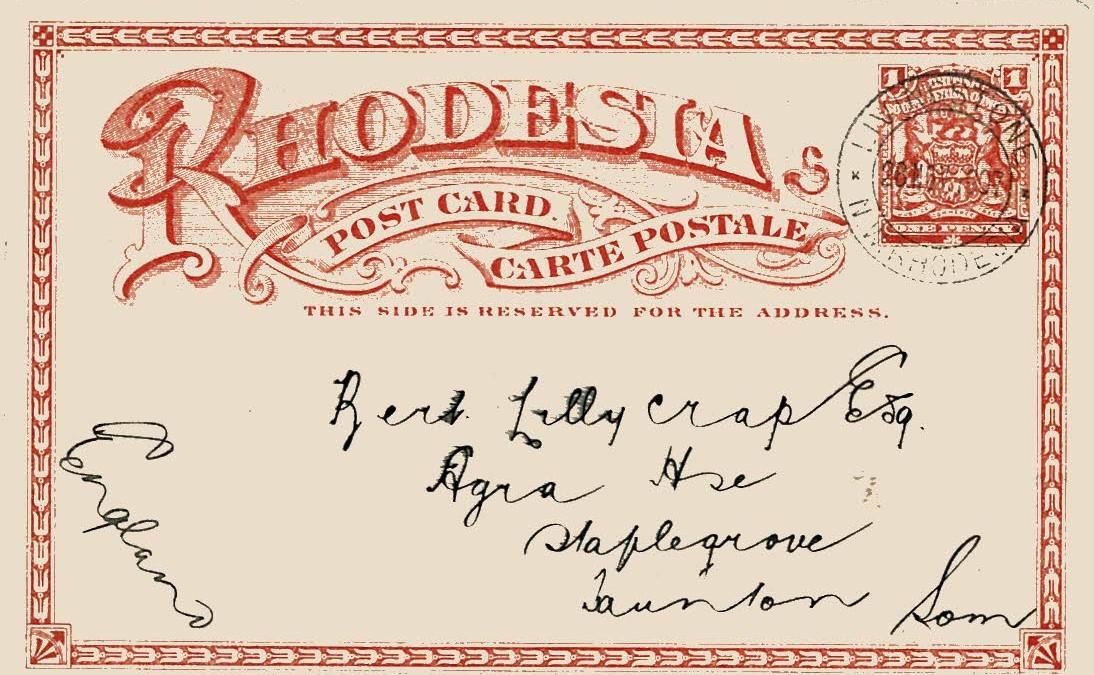 RHODESIA
POST CARD.
CARTE POSTALE
THIS SIDE IS RESERVED FOR THE ADDRESS.
1 1
ONE PENNY
LIVINGSTONE
N.W. RHODESIA
Bert Lillycrap Esq.
Agra Hse
Staplegrove
Taunton Som
England